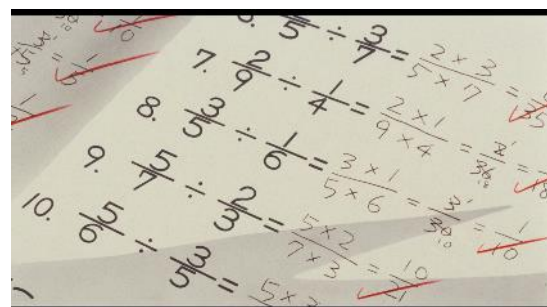 /5 ÷ 3/7 = 2 × 3 / 5 × 7 =
7. 2/9 ÷ 1/4 = 2 × 1 / 9 × 4 = 2/36 = 1/18
8. 3/5 ÷ 1/6 = 3 × 1 / 5 × 6 = 3/30 = 1/10
9. 5/7 ÷ 2/3 = 5 × 2 / 7 × 3 = 10/21
10. 5/6 ÷ 3/5 = 5 × 3